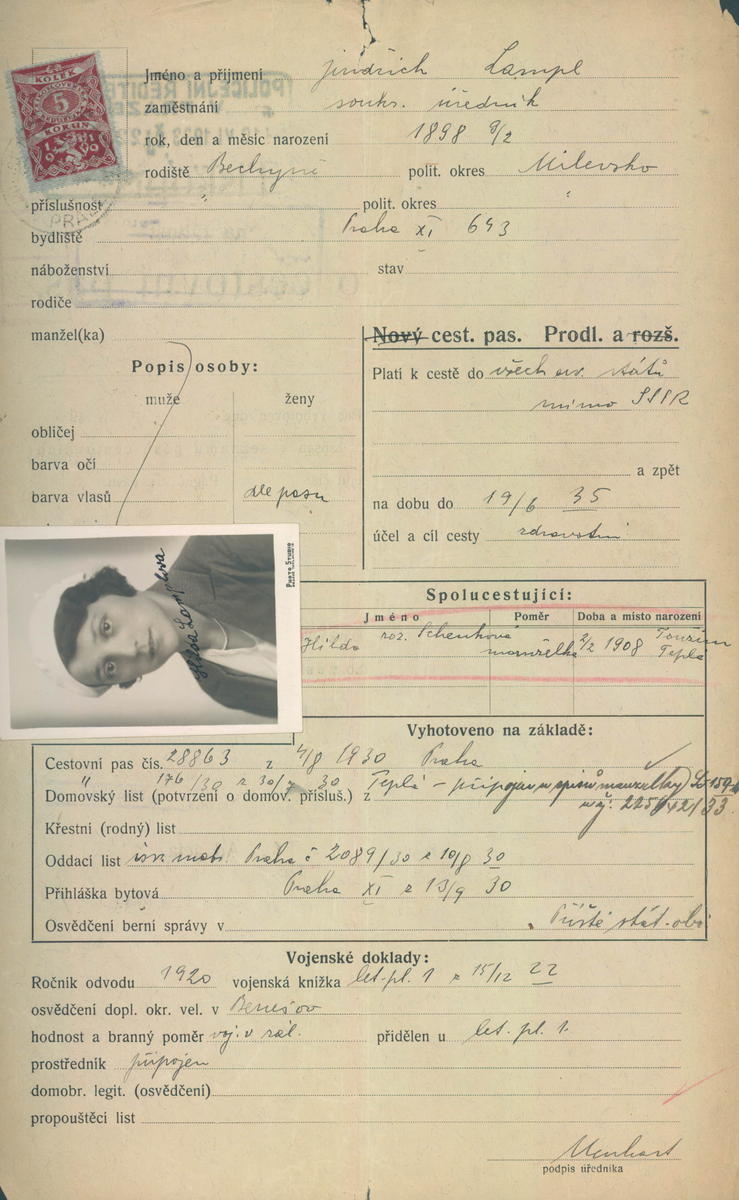 KOLEK
5
KORUN
Jméno a příjmení Jindřich Lampl
zaměstnání soukr. úředník
rok, den a měsíc narození 1898 8/2
rodiště Bechyně polit. okres Milevsko
příslušnost " polit. okres "
bydliště Praha XI 643
náboženství stav
rodiče
manžel(ka)
Nový cest. pas. Prodl. a rozš.
Popis osoby:
muže ženy
obličej
barva očí
barva vlasů dle pasu
Platí k cestě do všech ev. států
mimo SSSR
a zpět
na dobu do 19/6 35
účel a cíl cesty zdravotní
Hilda Lamplova
Photo Studio
Spolucestující:
Jméno Poměr Doba a místo narození
Hilda roz. Schenková manželka 2/2 1908 Toužim Teplá
Vyhotoveno na základě:
Cestovní pas čís. 28863 z 4/8 1930 Praha
" 176/30 z 30/7 30
Domovský list (potvrzení o domov. přísluš.) z Teplá – připojen u spisů manželky
Křestní (rodný) list
Oddací list isr. mat. Praha č 2089/30 z 10/8 30
Přihláška bytová Praha XI z 13/9 30
Osvědčení berní správy v
Vojenské doklady:
Ročník odvodu 1920 vojenská knížka let. pl. 1 z 15/12 22
osvědčení dopl. okr. vel. v Benešov
hodnost a branný poměr voj. v zál. přidělen u let. pl. 1.
prostředník připojen
domobr. legit. (osvědčení)
propouštěcí list
podpis úředníka